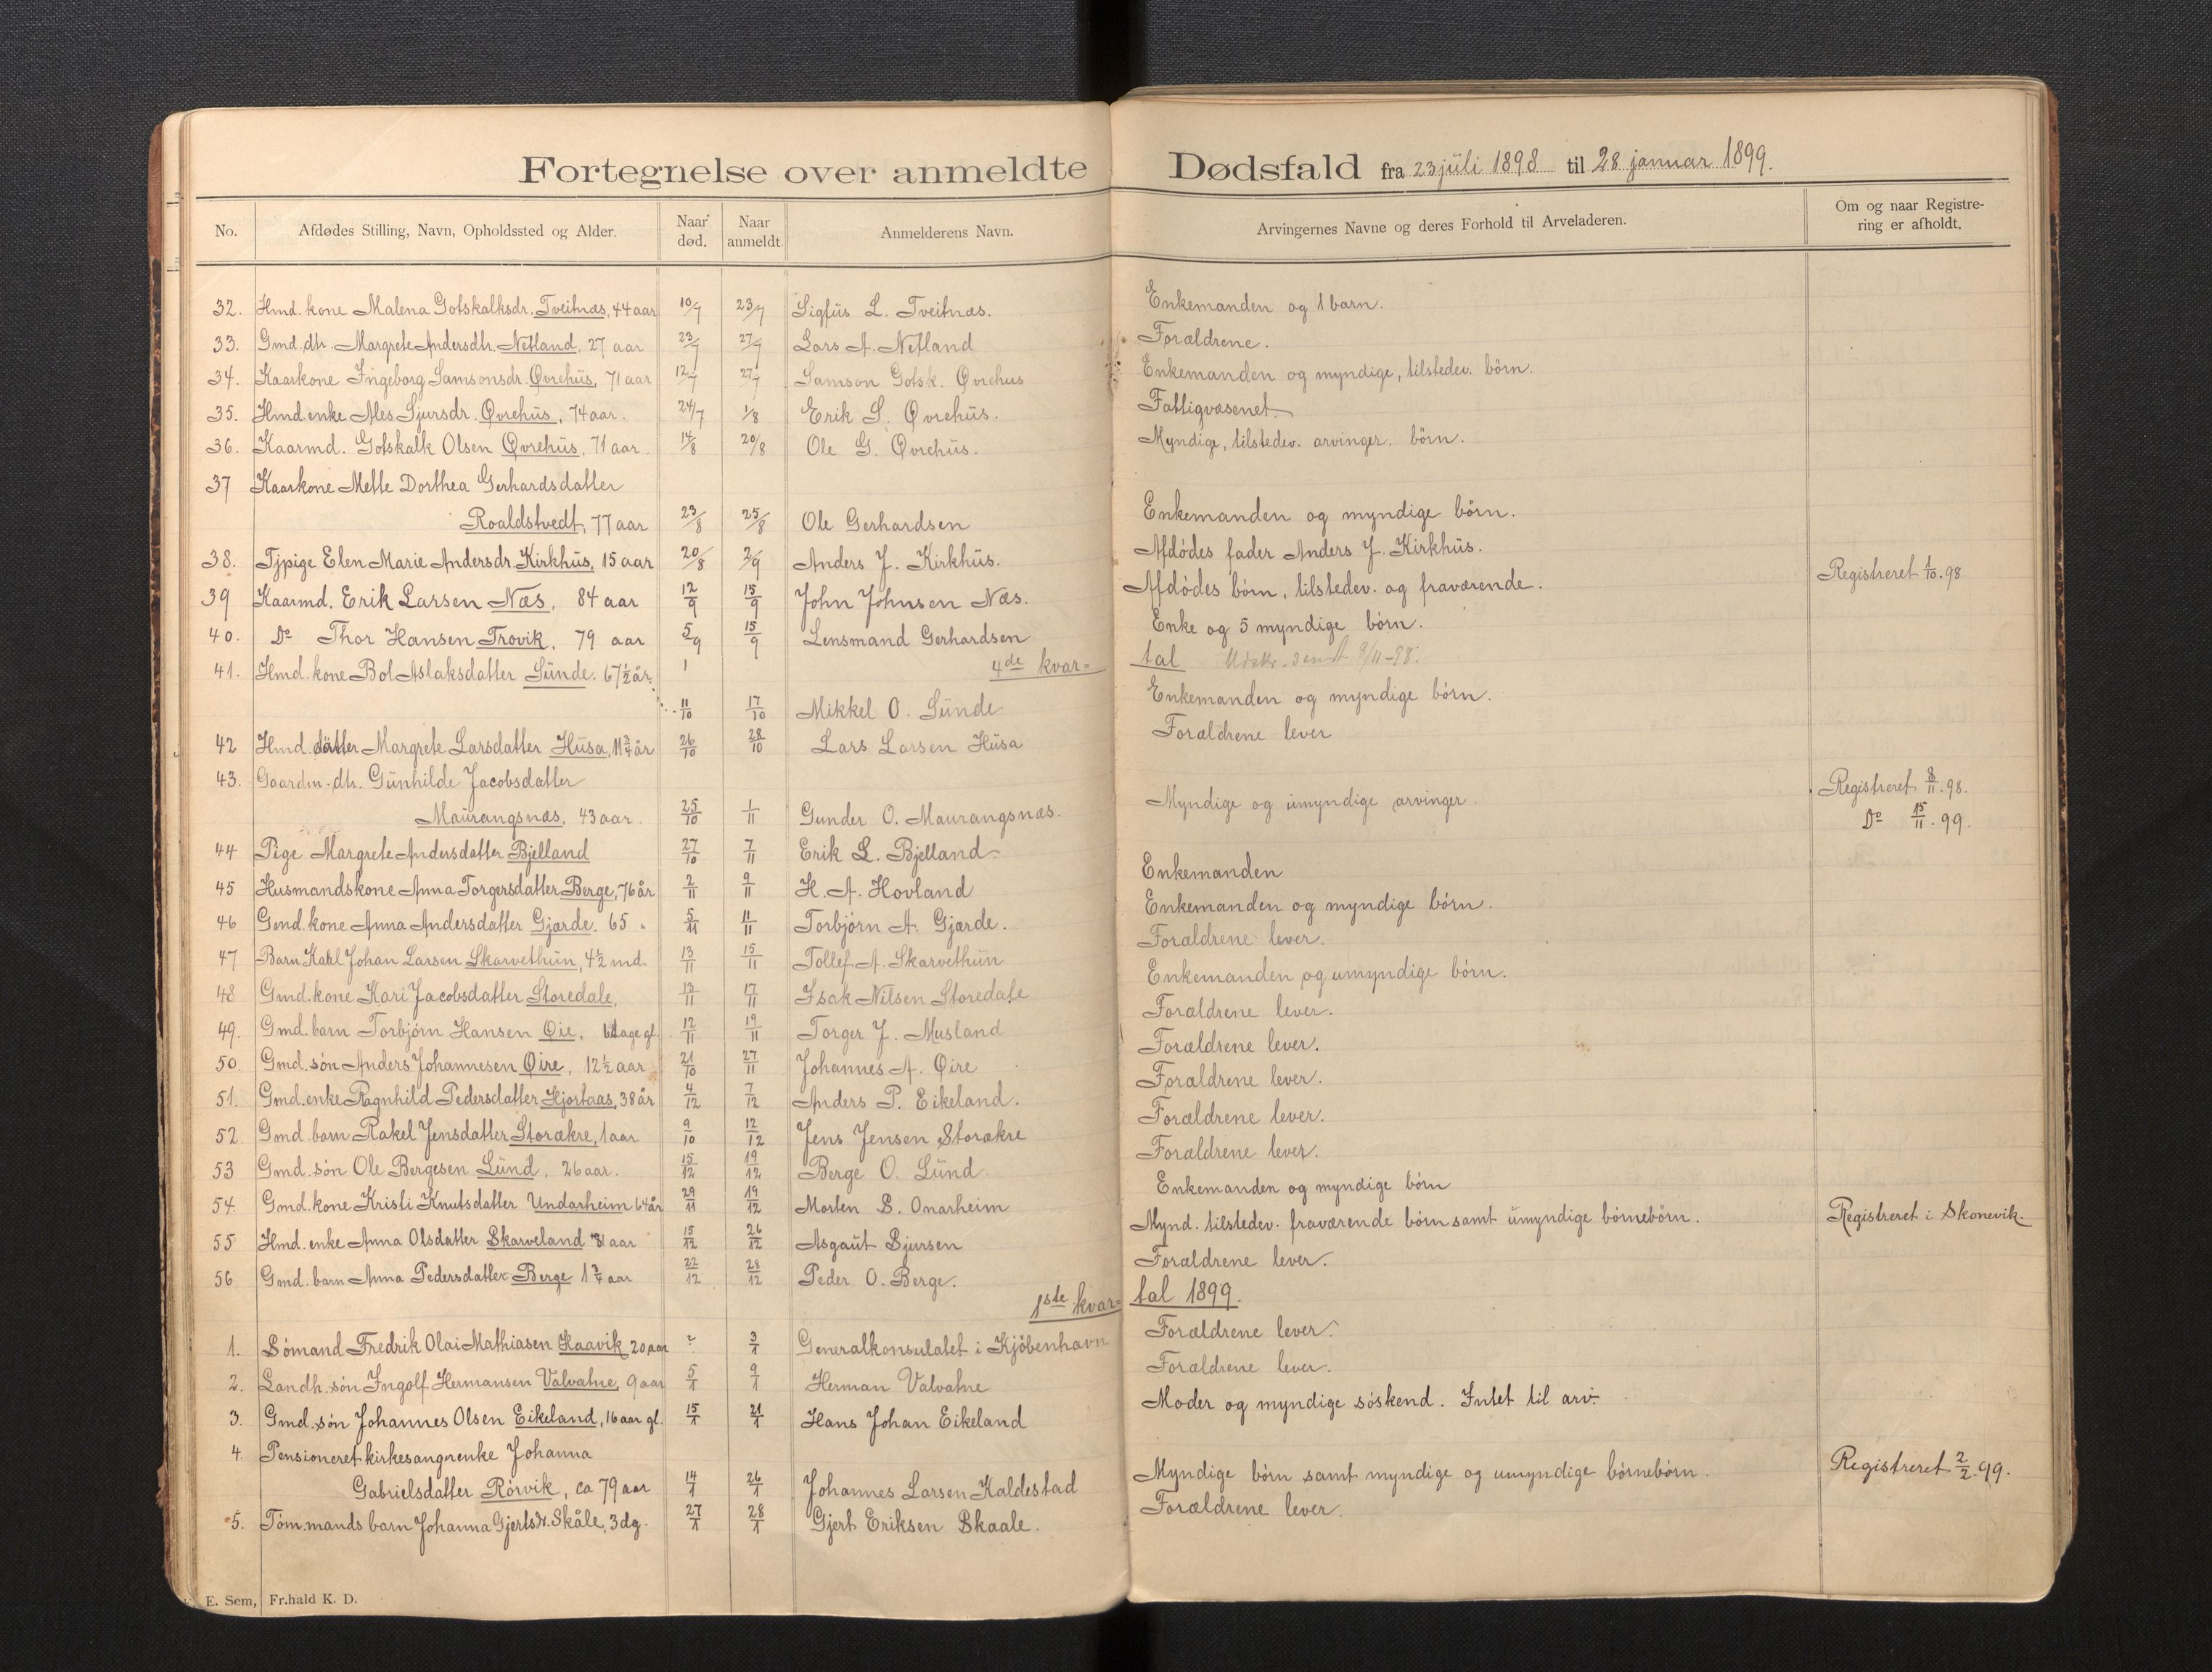 Fortegnelse over anmeldte Dødsfald fra 23 juli 1898 til 28 januar 1899.
No. Afdødes Stilling, Navn, Opholdssted og Alder. Naar død. Naar anmeldt. Anmelderens Navn. Arvingernes Navne og deres Forhold til Arveladeren. Om og naar Registrering er afholdt.
32. Hmd. kone Malena Gotskalksdr. Tveitnæs, 44 aar 10/7 23/7 Sigfüs L. Tveitnæs. Enkemanden og 1 barn.
33. Gmd. dtr. Margrete Andersdtr. Netland, 27 aar 23/7 27/7 Lars A. Netland Forældrene.
34. Kaarkone Ingeborg Samsonsdr. Øvrehüs, 71 aar 12/7 27/7 Samson Gotsk. Øvrehus Enkemanden og myndige, tilstedev. börn.
35. Hmd. enke Ales Sjursdr. Øvrehüs, 74 aar. 24/7 1/8 Erik S. Øvrehüs. Fattigvæsenet.
36. Kaarmd. Gotskalk Olsen Øvrehüs, 71 aar. 14/8 20/8 Ole G. Øvrehüs. Myndige, tilstedev. arvinger. börn.
37 Kaarkone Mette Dorthea Gerhardsdatter
Roaldstvedt, 77 aar 23/8 25/8 Ole Gerhardsen Enkemanden og myndige börn.
38. Tjpige Elen Marie Andersdr. Kirkhüs, 15 aar 20/8 2/9 Anders J. Kirkhüs. Afdódes fader Anders J. Kirkhüs.
39 Kaarmd. Erik Larsen Næs, 84 aar 12/9 15/9 John Johnsen Næs. Afdódes börn, tilstedev. og fraværende. Registreret 1/10. 98
40. Do Thor Hansen Trovik, 79 aar 5/9 15/9 Lensmand Gerhardsen Enke og 5 myndige börn.
4de kvar= tal 8/11-98.
41. Hmd. kone Bol Aslaksdatter Sünde. 67 1/2 år.
11/10 17/10 Mikkel O. Sünde Enkemanden og myndige börn.
42 Hmd. datter Margrete Larsdatter Hüsa, 11 3/4 år 26/10 28/10 Lars Larsen Hüsa Forældrene lever
43. Gaardm. dtr. Günhilde Jacobsdatter
Maurangsnæs, 43 aar. 25/10 1/11 Gunder O. Maurangsnæs. Myndige og ümyndige arvinger. Registreret 8/11. 98.
Do 15/11. 99.
44 Pige Margrete Andersdatter Bjelland 27/10 7/11 Erik L. Bjelland
45 Husmandskone Anna Torgersdatter Berge, 76 år 2/11 9/11 H. A. Hovland Enkemanden
46 Gmd. kone Anna Andersdatter Gjærde. 65 " 5/11 11/11 Torbjörn A. Gjærde. Enkemanden og myndige börn.
47 Barn Karl Johan Larsen Skarvethün, 4 1/2 md. 13/11 15/11 Tollef A. Skarvethün Forældrene lever.
48 Gmd. kone Kari Jacobsdatter Storedale, 13/11 17/11 Isak Nilsen Storedale Enkemanden og umyndige börn.
49. Gmd. barn Torbjörn Hansen Øie, dage gl. 12/11 19/11 Torger J. Musland Forældrene lever.
50. Gmd. són Anders Johannesen Øire, 12 1/2 aar 21/10 27/11 Johannes A. Øire Forældrene lever.
51. Gmd. enke Ragnhild Pedersdatter Hjortaas, 38 år 4/12 7/12 Anders P. Eikeland. Forældrene lever.
52. Gmd. barn Rakel Jensdatter Storækre, 1 aar 9/10 12/12 Jens Jensen Storækre Forældrene lever.
53 Gmd. són Ole Bergesen Lünd, 26 aar. 15/12 19/12 Berge O. Lünd. Forældrene lever.
54. Gmd. kone Kristi Knutsdatter Undarheim 64 år 29/11 19/12 Morten S. Onarheim Enkemanden og myndige börn
55 Hmd. enke Anna Olsdatter Skarveland 81 aar 15/12 26/12 Asgaüt Sjursen Mynd. tilstedev. fraværende börn samt ümyndige börnebörn. Registreret i Skonevik.
56 Gmd. barn Anna Pedersdatter Berge 1 3/4 aar 22/12 28/12 Peder O. Berge. Forældrene lever.
1ste kvar= tal 1899.
1. Sómand Fredrik Olai Mathiasen Haavik 20 aar ? 3/1 Generalkonsulatet i Kjöbenhavn Forældrene lever.
2. Landh. són Ingolf Hermansen Valvatne, 9 aar 5/1 9/1 Herman Valvatne Forældrene lever.
3. Gmd. són Johannes Olsen Eikeland, 16 aar gl. 15/1 21/1 Hans Johan Eikeland Moder og myndige söskend. Intet til arv.
4. Pensioneret kirkesangrenke Johanna
Gabrielsdatter Rörvik, ca 79 aar 14/1 26/1 Johannes Larsen Kaldestad Myndige börn samt myndige og umyndige börnebörn. Registreret 2/2. 99.
5. Tömmands barn Johanna Gjertsdr. Skåle, 3 dg. 27/1 28/1 Gjert Eriksen Skaale. Forældrene lever.
E. Sem, Fr.hald K. D.